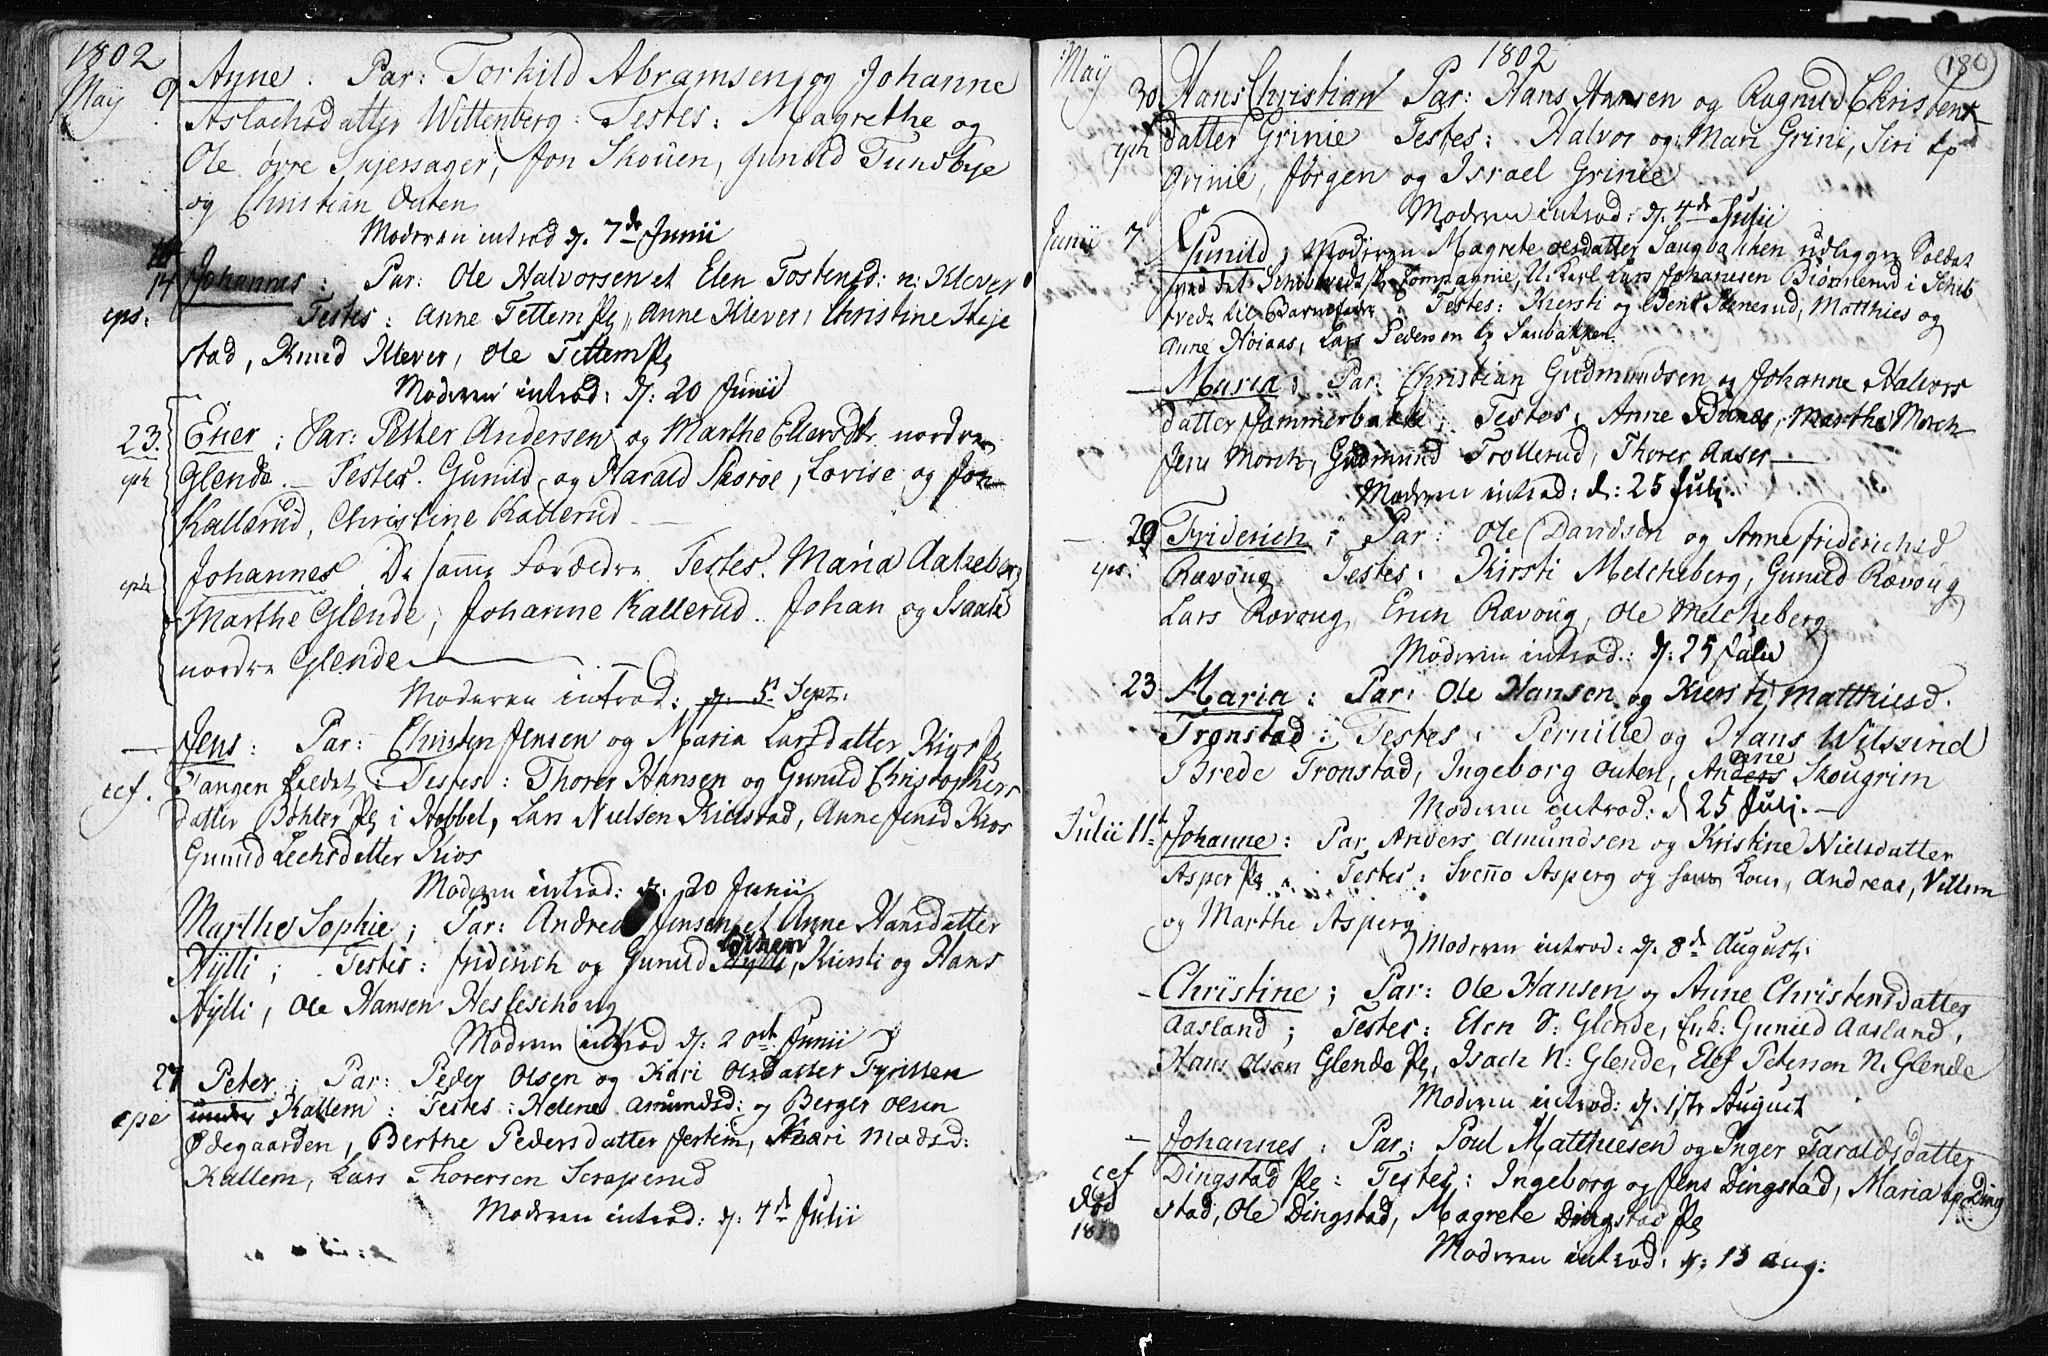 1802
May 9 Anne. Par: Torkild Abramsen og Johanne
Aslachsdatter Wittenberg: Testes: Magrethe og
Ole øvre Skjersager, Jon Skouen, Gunild Tunsbye
og Christian Outen
Moderen introd d. 7de Junii
14 Johannes: Par: Ole Halvorsen et Elen Tostensd: n: Klever
Testes: Anne Tettem Pg, Anne Klever, Christine Heje
stad, Knud Klever, Ole Tettem Pg
Moderen introd: d: 20 Junii
23. Ener: Par: Petter Andersen og Marthe Ellersdtr. nordre
Glende. Testes. Gunild og Harald Skoroe, Lovise og Jon
Kallerud, Christine Kallerud
Johannes De samme Forældre Testes. Maria
Marthe Glende, Johanne Kallerud. Johan og Isaach
nordre Glende
Moderen introd: d. 5. Sept:
Jens: Par: Christen Jensen og Maria Larsdatter Kios Pg
Tangen Soldat: Testes: Thorer Hansen og Gunild Christophers
datter Bøhler Pg i Hobbel, Lars Nielsen Kielstad, Anne Jensd Kios
Gunild Lechsdatter Kios
Moderen introd: d: 20 Junii
Marthe Sophie; Par: Andreas Jensen et Anne Hansdatter
Hylli; Testes: Friderich og Gunild Hylli, Kiersti og Hans
Hylli, Ole Hansen Hesleschoug
Moderen introd d: 20de Junii
27 Peter: Par: Peder Olsen og Kari Olsdatter
under Kallem: Testes: Helene Amundsd: og Berger Olsen
Ødegaarden, Berthe Pedersdatter Jertim, Kari Madsd:
Kallem, Lars Thoresen Scraperud
Moderen introd: d: 4de Julii
May 1802 180
30 Hans Christian Par: Hans Hansen og Ragnild Christens
datter Grinie Testes: Halvor og Mari Grini, Siri
Grinie, Jørgen og Israel Grinie
Moderen introd: d. 4de Julii
Junii 7 Gunild; Moderen Magrete Olsdatter Saugbakken udlagger Soldat
ved det Compagnie, U: Karl Lars Johannesen Biørnerud i Schib
tvedt til Barnefader: Testes: Kiersti og Bent Stenerud, Matthies og
Anne Høiaas, Lars Pedersen Saubakken
Maria; Par: Christian Gudmundsen og Johanne Halvors
datter Jammerbakke; Testes: Anne Marthe Morch
Jens Morch, Gudmund Trollerud, Thorer Aaser
Moderen introd: d: 25 Juli.
20 Friderich; Par: Ole Davidsen og Anne Friderichsd
Rævoug Testes: Kirsti Melcheberg, Gunild Rævoug,
Lars Rævoug, Erich Rævoug, Ole Melcheberg
Moderen introd: d: 25 Julii
23 Maria: Par: Ole Hansen og Kiersti Matthiesd.
Tronstad: Testes: Pernille og Hans
Brede Tronstad, Ingeborg Outen, Anders Ane Skougrim
Moderen introd: d 25 Juli.
Julii 11t Johanne: Par Anders Amundsen og Kristine Nielsdatter
Asper Pg: Testes: Svenno Asperg og Andreas, Villem
og Marthe Asperg
Moderen introd: d. 8de August:
Christine; Par: Ole Hansen og Anne Christensdatter
Aasland; Testes: Elen S: Glende, Enk: Gunild Aasland,
Hans Olsen Glende Pg, Isach N: Glende, Elef Petersen N. Glende
Moderen introd: d. 1ste August
Johannes: Par: Poul Matthiesen og Inger Taraldsdatter
Dingstad Pg: Testes: Ingeborg og Jens Dingstad, Maria Ding
stad, Ole Dingstad, Magrete Dingstad Pg
Moderen introd: d: 15 Aug: